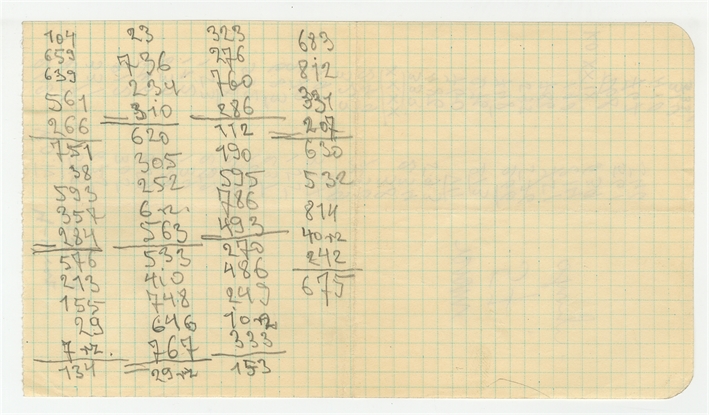 104
659
639
561
266
751
38
593
354
284
576
213
155
29
7+2.
134
23
736
234
310
620
305
252
6+2.
563
533
410
748
646
767
29+2
323
276
760
286
112
190
595
786
493
270
486
249
10+2
333
153
683
812
331
207
630
532
814
40+2
242
675